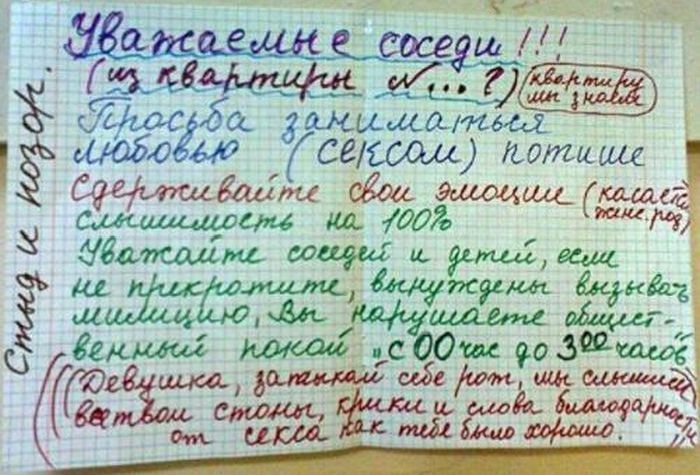 Уважаемые соседи!!!
(из квартиры №...?) (квартиру мы знаем)
Просьба заниматься
любовью (сексом) потише
Сдерживайте свои эмоции (касается женс. род)
слышимость на 100%
Уважайте соседей и детей, если
не прекратите, вынуждены вызывать
милицию, Вы нарушаете общест-
венный покой „с 00 час до 3 00 часов"
((Девушка, затыкай себе рот, мы слышим
все твои стоны, крики и слова благодарности
от секса как тебе было хорошо.))
Стыд и позор.